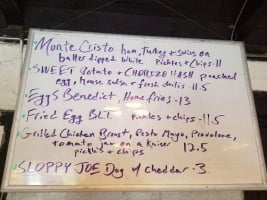 • Monte Cristo ham, turkey + swiss on
batter dipped white Pickles + Chips - 11
• SWEET Potato + CHORIZO HASH poached
egg, house salsa + fresh chilis - 11.5
• Eggs Benedict, Home fries - 13
• Fried Egg BLT pickles + chips - 11.5
• Grilled Chicken Breast, Pesto Mayo, Provolone,
tomato jam on a Kaiser
pickles + chips 12.5
• SLOPPY JOE Dog w/ cheddar - 3.